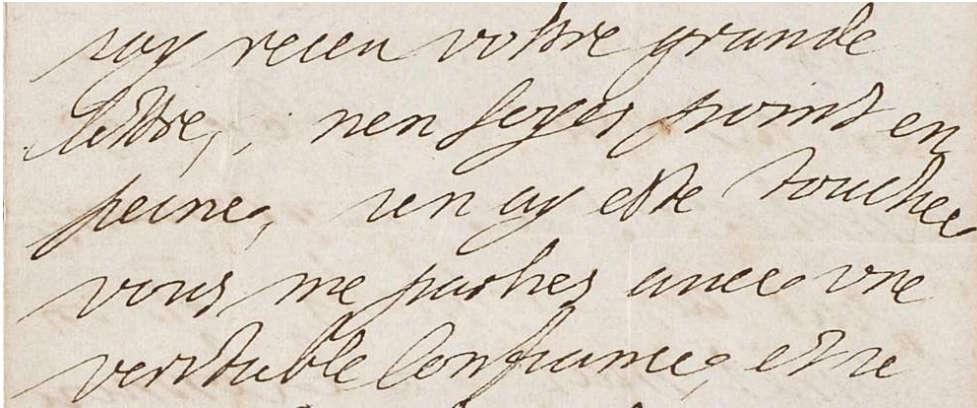 jay receu vottre grande
lettre, nen soyes point en
peine, jen ay esté touchee
vous me parles avec vne
veritable confiance, et je